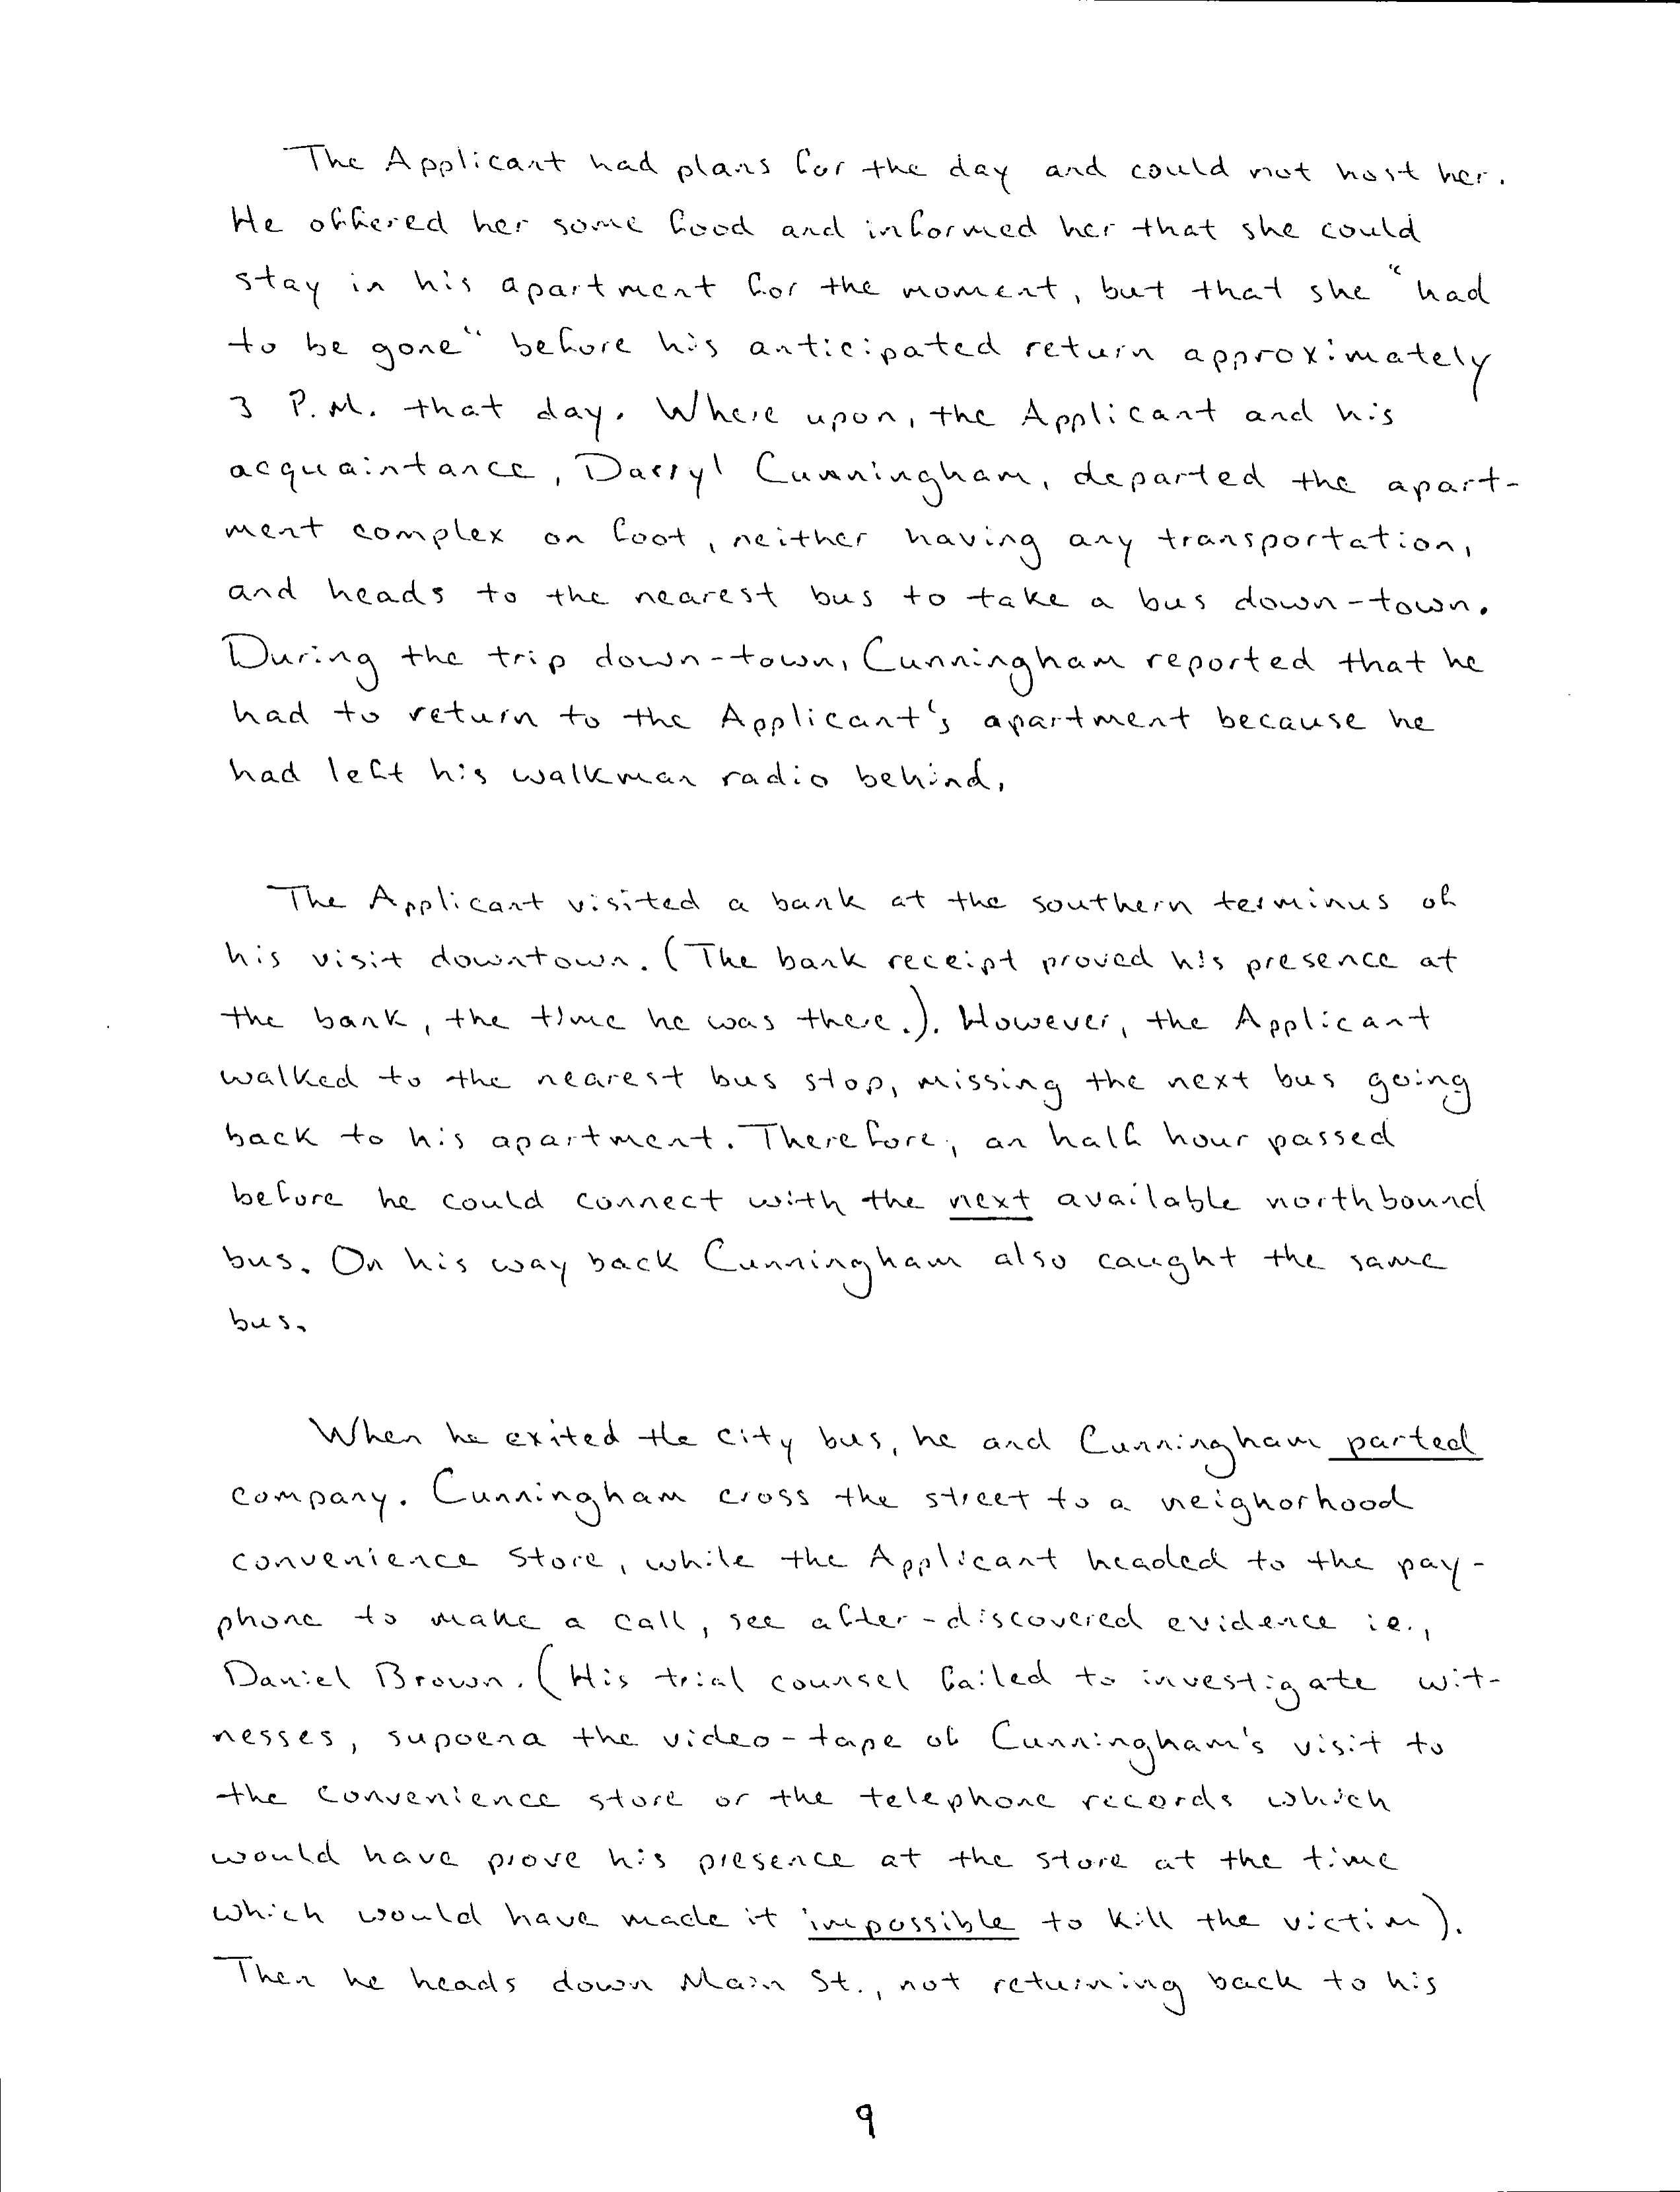 The Applicant had plans for the day and could not host her.
He offered her some food and informed her that she could
stay in his apartment for the moment, but that she "had
to be gone" before his anticipated return approximately
3 P.M. that day. Where upon, the Applicant and his
acquaintance, Darryl Cunningham, departed the apart-
ment complex on foot, neither having any transportation,
and heads to the nearest bus to take a bus down-town.
During the trip down-town, Cunningham reported that he
had to return to the Applicant's apartment because he
had left his walkman radio behind.
The Applicant visited a bank at the southern terminus of
his visit downtown. (The bank receipt proved his presence at
the bank, the time he was there.). However, the Applicant
walked to the nearest bus stop, missing the next bus going
back to his apartment. Therefore, an half hour passed
before he could connect with the next available northbound
bus. On his way back Cunningham also caught the same
bus.
When he exited the city bus, he and Cunningham parted
company. Cunningham cross the street to a neighorhood
convenience store, while the Applicant headed to the pay-
phone to make a call, see after-discovered evidence ie.,
Daniel Brown. (His trial counsel failed to investigate wit-
nesses, supoena the video-tape of Cunningham's visit to
the convenience store or the telephone records which
would have prove his presence at the store at the time
which would have made it impossible to kill the victim).
Then he heads down Main St., not returning back to his
9